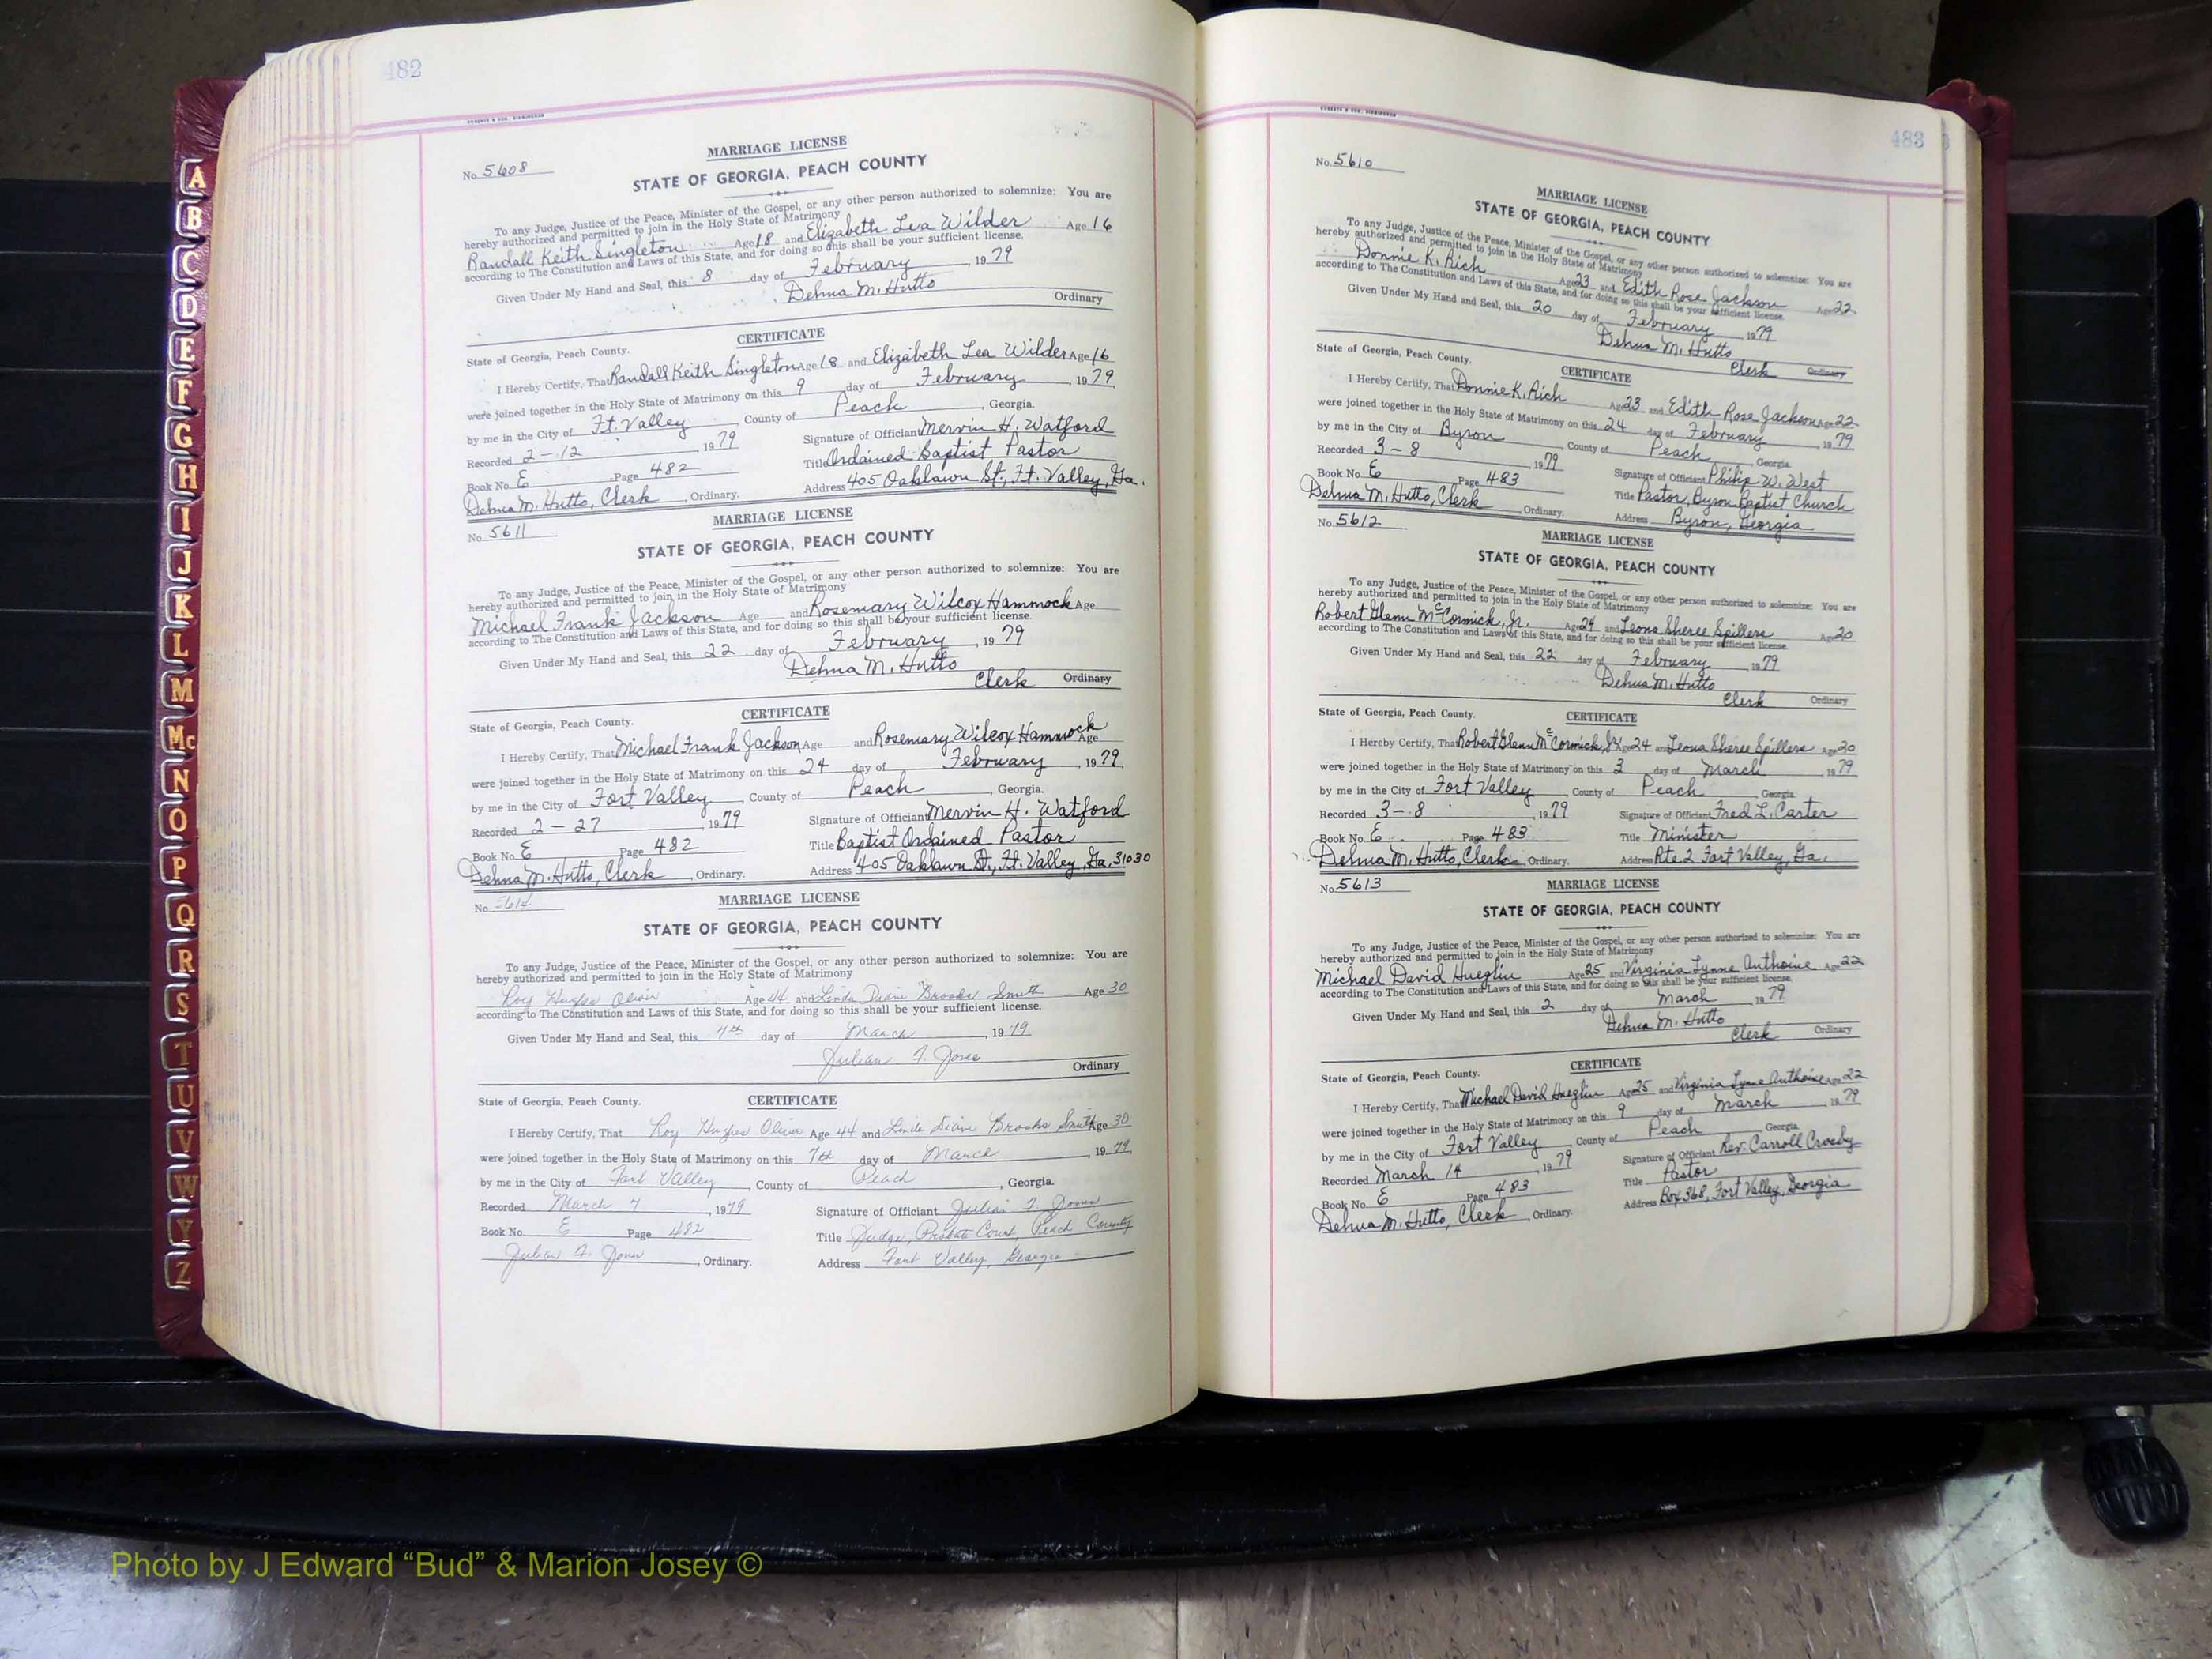 482
MARRIAGE LICENSE
No. 5608
STATE OF GEORGIA, PEACH COUNTY
To any Judge, Justice of the Peace, Minister of the Gospel, or any other person authorized to solemnize: You are
hereby authorized and permitted to join in the Holy State of Matrimony
Randall Keith Singleton Age 18 and Elizabeth Lea Wilder Age 16
according to The Constitution and Laws of this State, and for doing so this shall be your sufficient license.
Given Under My Hand and Seal, this 8 day of February, 1979
Dehna M. Hutto
Ordinary
CERTIFICATE
State of Georgia, Peach County.
I Hereby Certify, That Randall Keith Singleton Age 18 and Elizabeth Lea Wilder Age 16
were joined together in the Holy State of Matrimony on this 9 day of February, 1979
by me in the City of Ft. Valley, County of Peach, Georgia.
Recorded 2-12 1979 Signature of Officiant Mervin H. Watford
Book No. E Page 482 Title Ordained Baptist Pastor
Dehna M. Hutto, Clerk, Ordinary. Address 405 Oaklawn St., Ft. Valley, Ga.
MARRIAGE LICENSE
No. 5611
STATE OF GEORGIA, PEACH COUNTY
To any Judge, Justice of the Peace, Minister of the Gospel, or any other person authorized to solemnize: You are
hereby authorized and permitted to join in the Holy State of Matrimony
Michael Frank Jackson Age and Rosemary Wilcox Hammock Age
according to The Constitution and Laws of this State, and for doing so this shall be your sufficient license.
Given Under My Hand and Seal, this 22 day of February, 1979
Dehna M. Hutto
Clerk Ordinary
CERTIFICATE
State of Georgia, Peach County.
I Hereby Certify, That Michael Frank Jackson Age and Rosemary Wilcox Hammock Age
were joined together in the Holy State of Matrimony on this 24 day of February, 1979
by me in the City of Fort Valley, County of Peach, Georgia.
Recorded 2-27, 1979 Signature of Officiant Mervin H. Watford
Book No. E Page 482 Title Baptist Ordained Pastor
Dehna M. Hutto, Clerk, Ordinary. Address 405 Oaklawn St., Ft. Valley, Ga. 31030
MARRIAGE LICENSE
No. 5614
STATE OF GEORGIA, PEACH COUNTY
To any Judge, Justice of the Peace, Minister of the Gospel, or any other person authorized to solemnize: You are
hereby authorized and permitted to join in the Holy State of Matrimony
Roy Hughes Oliver Age 44 and Linda Diane Brooks Smith Age 30
according to The Constitution and Laws of this State, and for doing so this shall be your sufficient license.
Given Under My Hand and Seal, this 7th day of March, 1979
Julian F. Jones
Ordinary
CERTIFICATE
State of Georgia, Peach County.
I Hereby Certify, That Roy Hughes Oliver Age 44 and Linda Diane Brooks Smith Age 30
were joined together in the Holy State of Matrimony on this 7th day of March, 1979
by me in the City of Fort Valley, County of Peach, Georgia.
Recorded March 7, 1979 Signature of Officiant Julian F. Jones
Book No. E Page 482 Title Judge, Probate Court, Peach County
Julian F. Jones, Ordinary. Address Fort Valley, Georgia
483
No. 5610
MARRIAGE LICENSE
STATE OF GEORGIA, PEACH COUNTY
To any Judge, Justice of the Peace, Minister of the Gospel, or any other person authorized to solemnize: You are
hereby authorized and permitted to join in the Holy State of Matrimony
Donnie K. Rich Age 23 and Edith Rose Jackson Age 22
according to The Constitution and Laws of this State, and for doing so this shall be your sufficient license.
Given Under My Hand and Seal, this 20 day of February, 1979
Dehna M. Hutto
Clerk Ordinary
CERTIFICATE
State of Georgia, Peach County.
I Hereby Certify, That Donnie K. Rich Age 23 and Edith Rose Jackson Age 22
were joined together in the Holy State of Matrimony on this 24 day of February, 1979
by me in the City of Byron, County of Peach, Georgia.
Recorded 3-8, 1979 Signature of Officiant Philip W. West
Book No. E Page 483 Title Pastor, Byron Baptist Church
Dehna M. Hutto, Clerk, Ordinary. Address Byron, Georgia
No. 5612
MARRIAGE LICENSE
STATE OF GEORGIA, PEACH COUNTY
To any Judge, Justice of the Peace, Minister of the Gospel, or any other person authorized to solemnize: You are
hereby authorized and permitted to join in the Holy State of Matrimony
Robert Glenn McCormick, Jr. Age 24 and Leona Sheree Spillers Age 20
according to The Constitution and Laws of this State, and for doing so this shall be your sufficient license.
Given Under My Hand and Seal, this 22 day of February, 1979
Dehna M. Hutto
Clerk Ordinary
CERTIFICATE
State of Georgia, Peach County.
I Hereby Certify, That Robert Glenn McCormick, Jr. Age 24 and Leona Sheree Spillers Age 20
were joined together in the Holy State of Matrimony on this 3 day of March, 1979
by me in the City of Fort Valley, County of Peach, Georgia.
Recorded 3-8, 1979 Signature of Officiant Fred L. Carter
Book No. E Page 483 Title Minister
Dehna M. Hutto, Clerk, Ordinary. Address Rte. 2 Fort Valley, Ga.
No. 5613
MARRIAGE LICENSE
STATE OF GEORGIA, PEACH COUNTY
To any Judge, Justice of the Peace, Minister of the Gospel, or any other person authorized to solemnize: You are
hereby authorized and permitted to join in the Holy State of Matrimony
Michael David Hueglin Age 25 and Virginia Lynne Anthoine Age 22
according to The Constitution and Laws of this State, and for doing so this shall be your sufficient license.
Given Under My Hand and Seal, this 2 day of March, 1979
Dehna M. Hutto
Clerk Ordinary
CERTIFICATE
State of Georgia, Peach County.
I Hereby Certify, That Michael David Hueglin Age 25 and Virginia Lynne Anthoine Age 22
were joined together in the Holy State of Matrimony on this 9 day of March, 1979
by me in the City of Fort Valley, County of Peach, Georgia.
Recorded March 14, 1979 Signature of Officiant Rev. Carroll Crosby
Book No. E Page 483 Title Pastor
Dehna M. Hutto, Clerk, Ordinary. Address Box 368, Fort Valley, Georgia
A
B
C
D
E
F
G
H
I
J
K
L
M
Mc
N
O
P
Q
R
S
T
U
V
W
Y
Z
Photo by J Edward “Bud” & Marion Josey ©